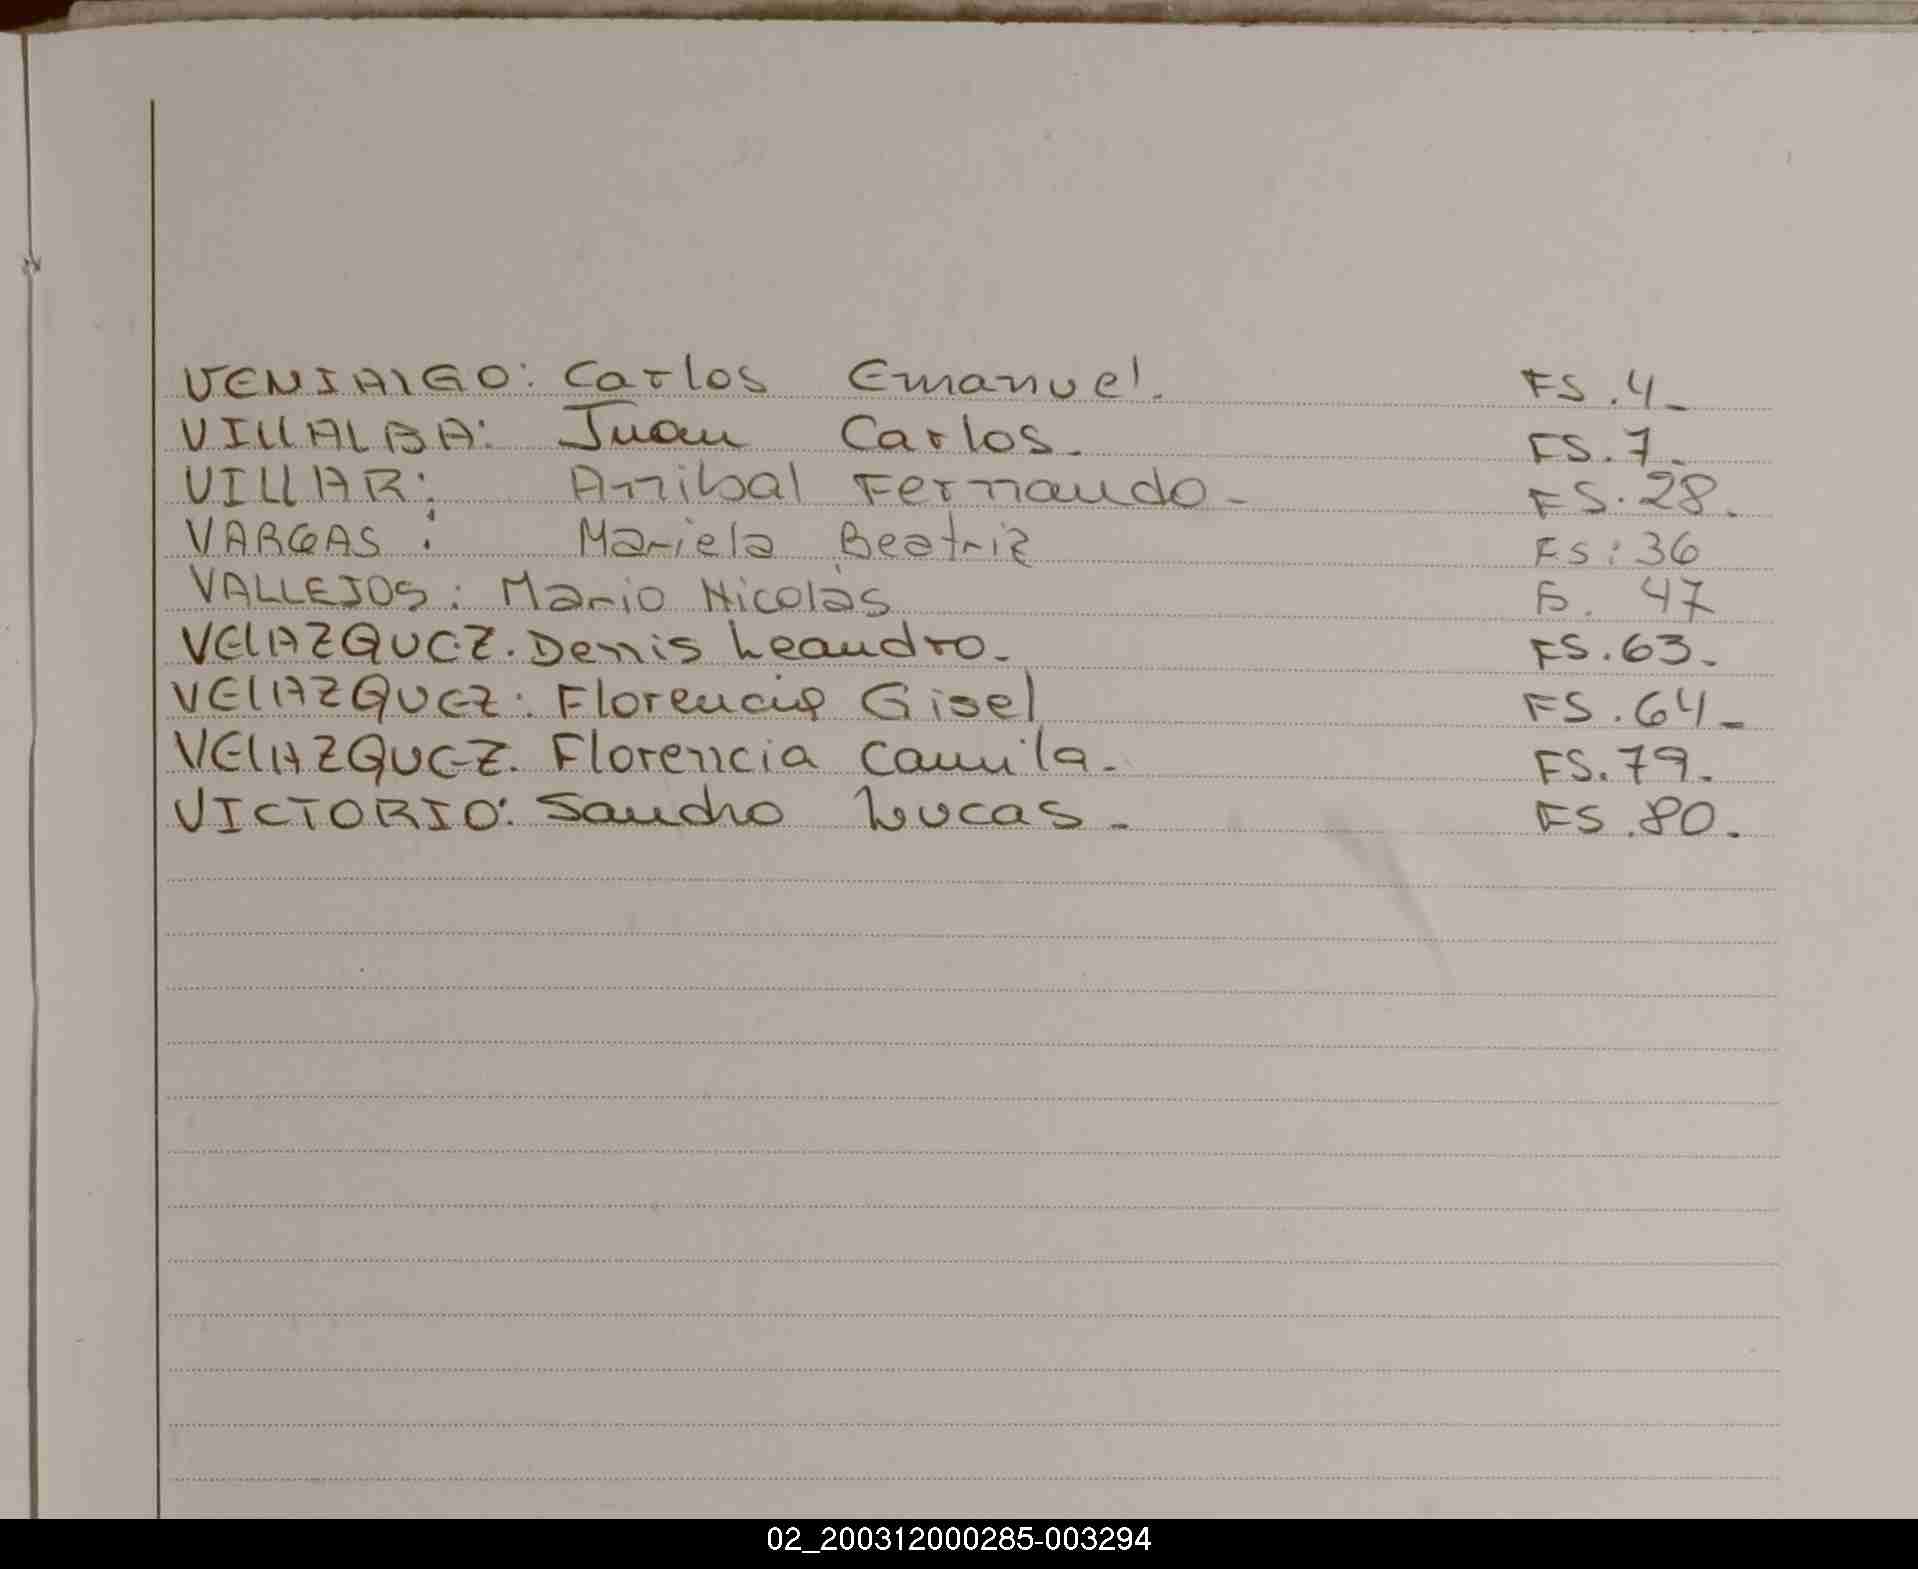 VENIALGO: Carlos Emanuel. FS.4-
VILLALBA: Juan Carlos. FS.7-
VILLAR: Anibal Fernando- FS.28.
VARGAS: Mariela Beatriz Fs: 36
VALLEJOS: Mario Nicolás Fs. 47
VELAZQUEZ. Denis Leandro- FS.63-
VELAZQUEZ: Florencia Gisel FS.64-
VELAZQUEZ. Florencia Camila- FS.79-
VICTORIO: Sandro Lucas- FS.80.
02_200312000285-003294